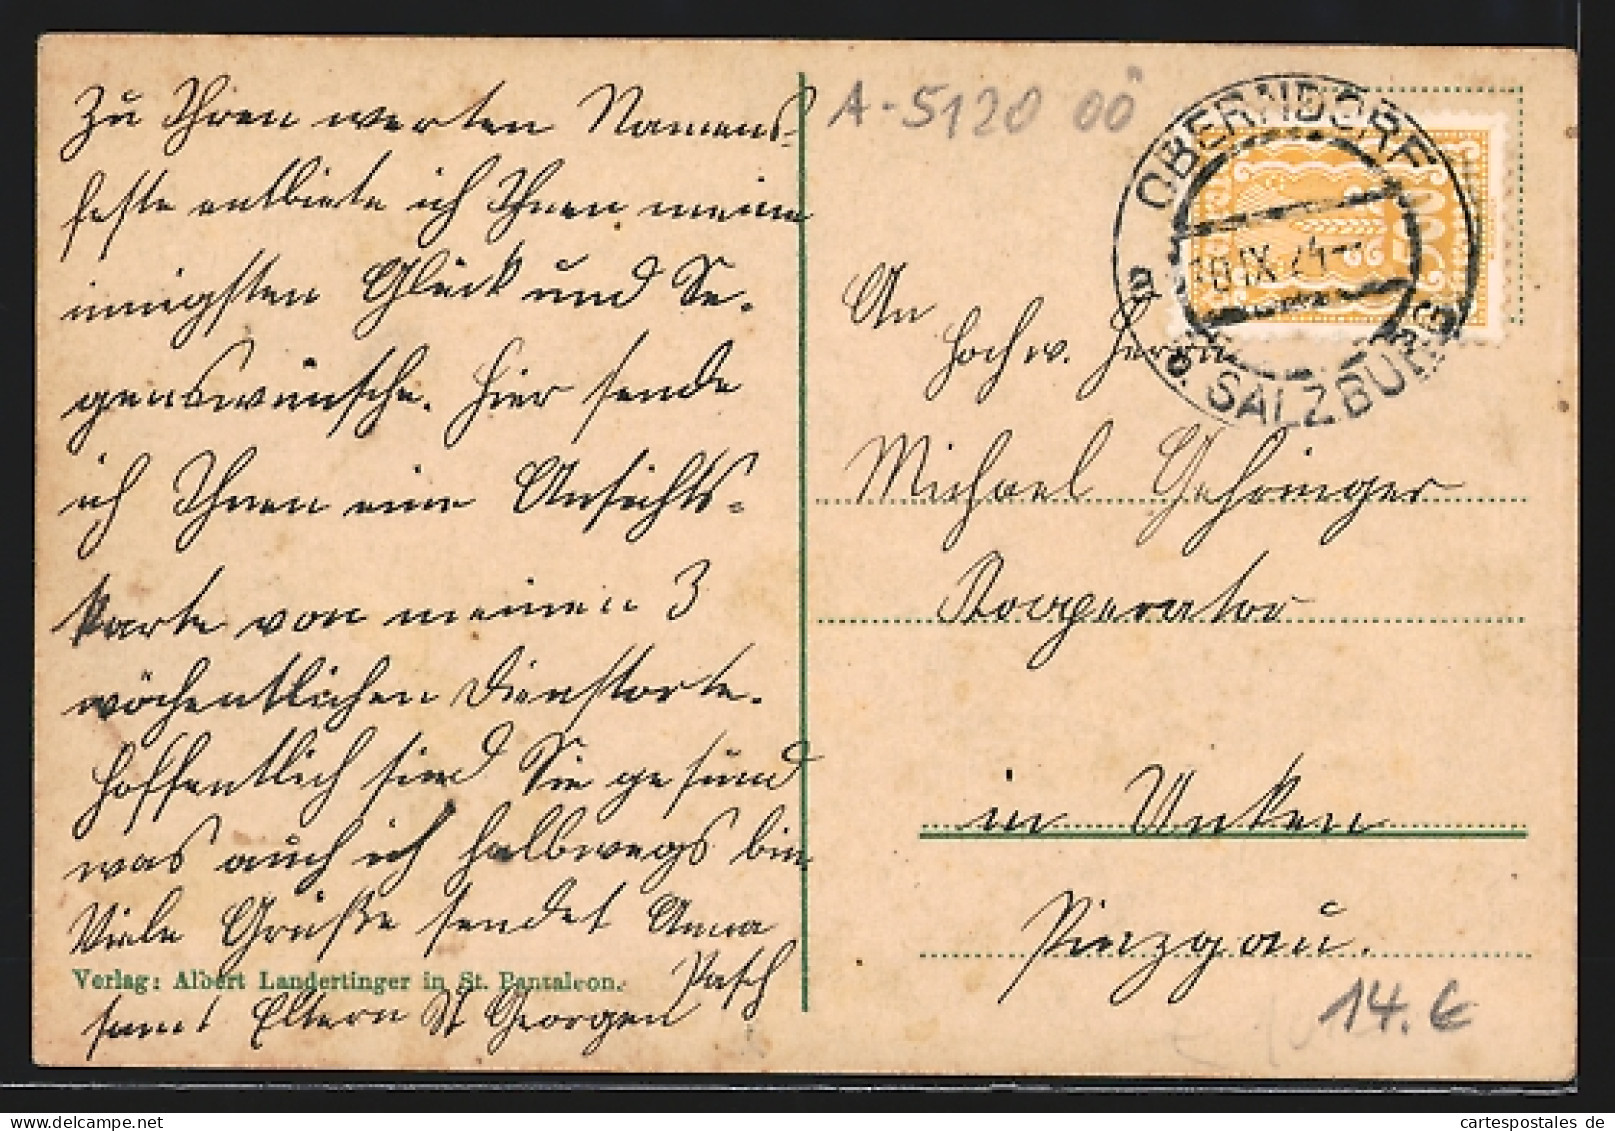 Zu Ihren werten Namens-
feste entbiete ich Ihnen meine
innigsten Glück und Se-
genswünsche. Hier sende
ich Ihnen eine Ansichts-
karte von meinen 3
wöchentlichen Dienstorte.
Hoffentlich sind Sie gesund
was auch ich halbwegs bin.
Viele Grüße sendet Anna
Pasch
samt Eltern St Georgen
Verlag: Albert Landertinger in St. Pantaleon.
A-5120 00
OBERNDORF
a. d. SALZBURG
18 IX 24
500
An
Hochw. Herrn
Michael Gehringer
Kooperator
in Unken
Pinzgau.
14.€
cartespostales de